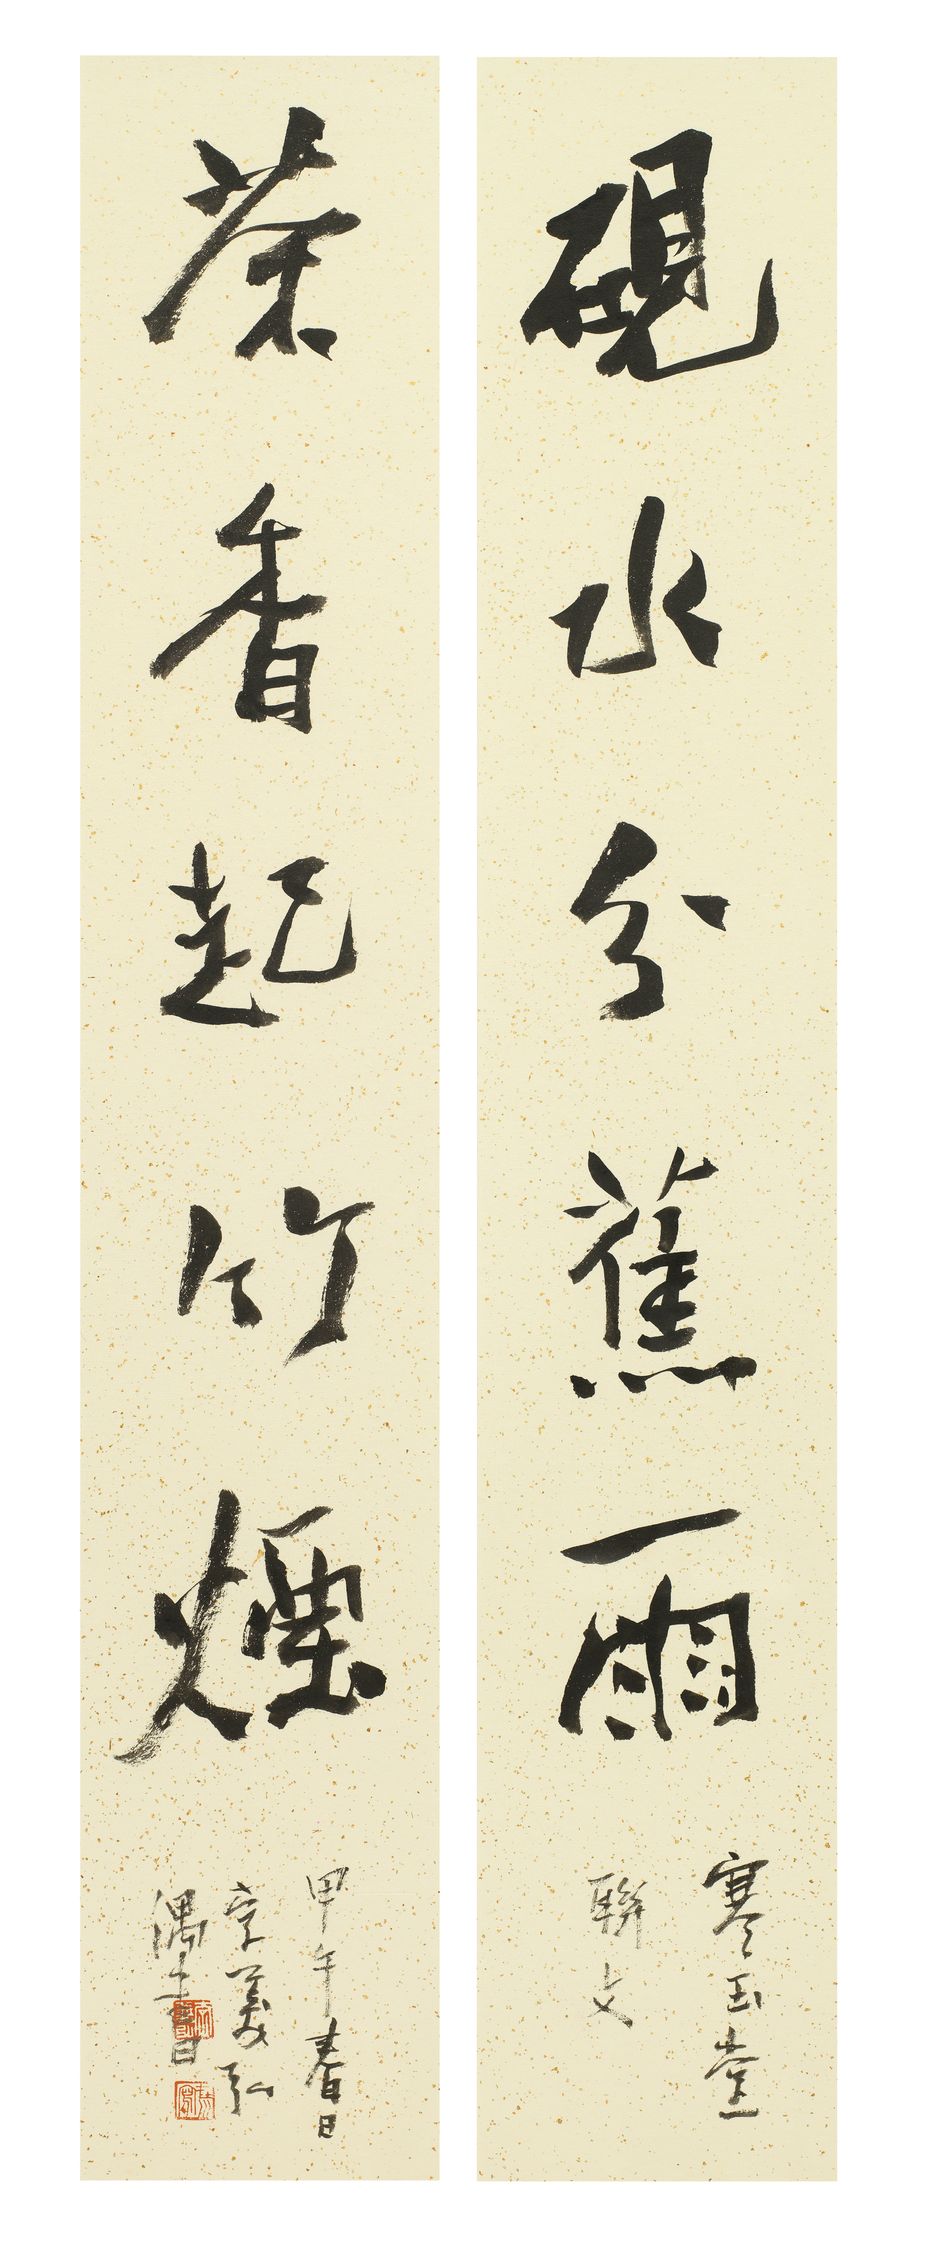 硯水分蕉雨
寒玉堂
聯文
茶香起竹煙
甲午春日
李義弘
偶書